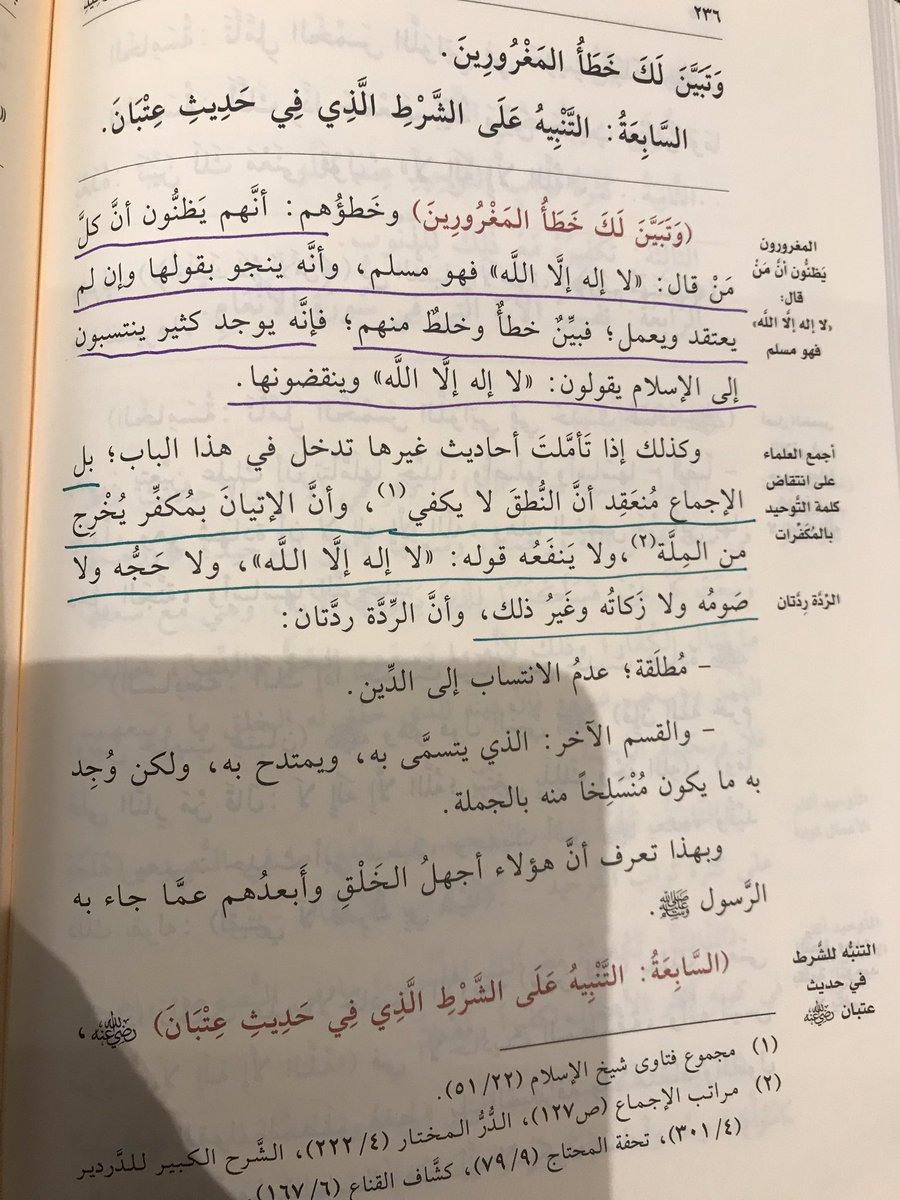 ٢٣٦
وَتَبَيَّنَ لَكَ خَطَأُ المَغْرُورِينَ.
السَّابِعَةُ: التَّنْبِيهُ عَلَى الشَّرْطِ الَّذِي فِي حَدِيثِ عِتْبَانَ.
(وَتَبَيَّنَ لَكَ خَطَأُ المَغْرُورِينَ) وخَطؤُهم: أنَّهم يَظنُّون أنَّ كلَّ
مَنْ قال: «لا إله إلَّا اللَّه» فهو مسلم، وأنَّه ينجو بقولها وإن لم
يعتقد ويعمل؛ فبيِّنٌ خطأٌ وخلطٌ منهم؛ فإنَّه يوجد كثير ينتسبون
إلى الإسلام يقولون: «لا إله إلَّا اللَّه» وينقضونها.
المغرورون
يَظنُّون أنَّ مَنْ
قال:
«لا إله إلَّا اللَّه»
فهو مسلم
وكذلك إذا تَأمَّلتَ أحاديث غيرها تدخل في هذا الباب؛ بل
الإجماع مُنعَقِد أنَّ النُّطقَ لا يكفي(١)، وأنَّ الإتيانَ بمُكفِّر يُخْرِج
من المِلَّة(٢)،ولا يَنفَعُه قوله: «لا إله إلَّا اللَّه»، ولا حَجُّه ولا
صَومُه ولا زَكاتُه وغَيرُ ذلك، وأنَّ الرِّدَّة ردَّتان:
أجمع العلماء
على انتقاض
كلمة التَّوحيد
بالمُكَفِّرات
الرِّدَّة رِدَّتان
– مُطلَقة؛ عدمُ الانتساب إلى الدِّين.
– والقسم الآخر: الذي يتسمَّى به، ويمتدح به، ولكن وُجِد
به ما يكون مُنْسَلِخاً منه بالجملة.
وبهذا تعرف أنَّ هؤلاء أجهلُ الخَلْقِ وأَبعدُهم عمَّا جاء به
الرَّسول ﷺ.
(السَّابِعَةُ: التَّنْبِيهُ عَلَى الشَّرْطِ الَّذِي فِي حَدِيثِ عِتْبَانَ) رضي الله عنه،
التنبُّه للشَّرط
في حديث
عتبان رضي الله عنه
(١) مجموع فتاوى شيخ الإسلام (٥١/٢٢).
(٢) مراتب الإجماع (ص١٢٧)، الدُّرُّ المختار (٢٢٢/٤)، الشَّرح الكبير للدَّردير
(٣٠١/٤)، تحفة المحتاج (٧٩/٩)، كشَّاف القناع (١٦٧/٦).